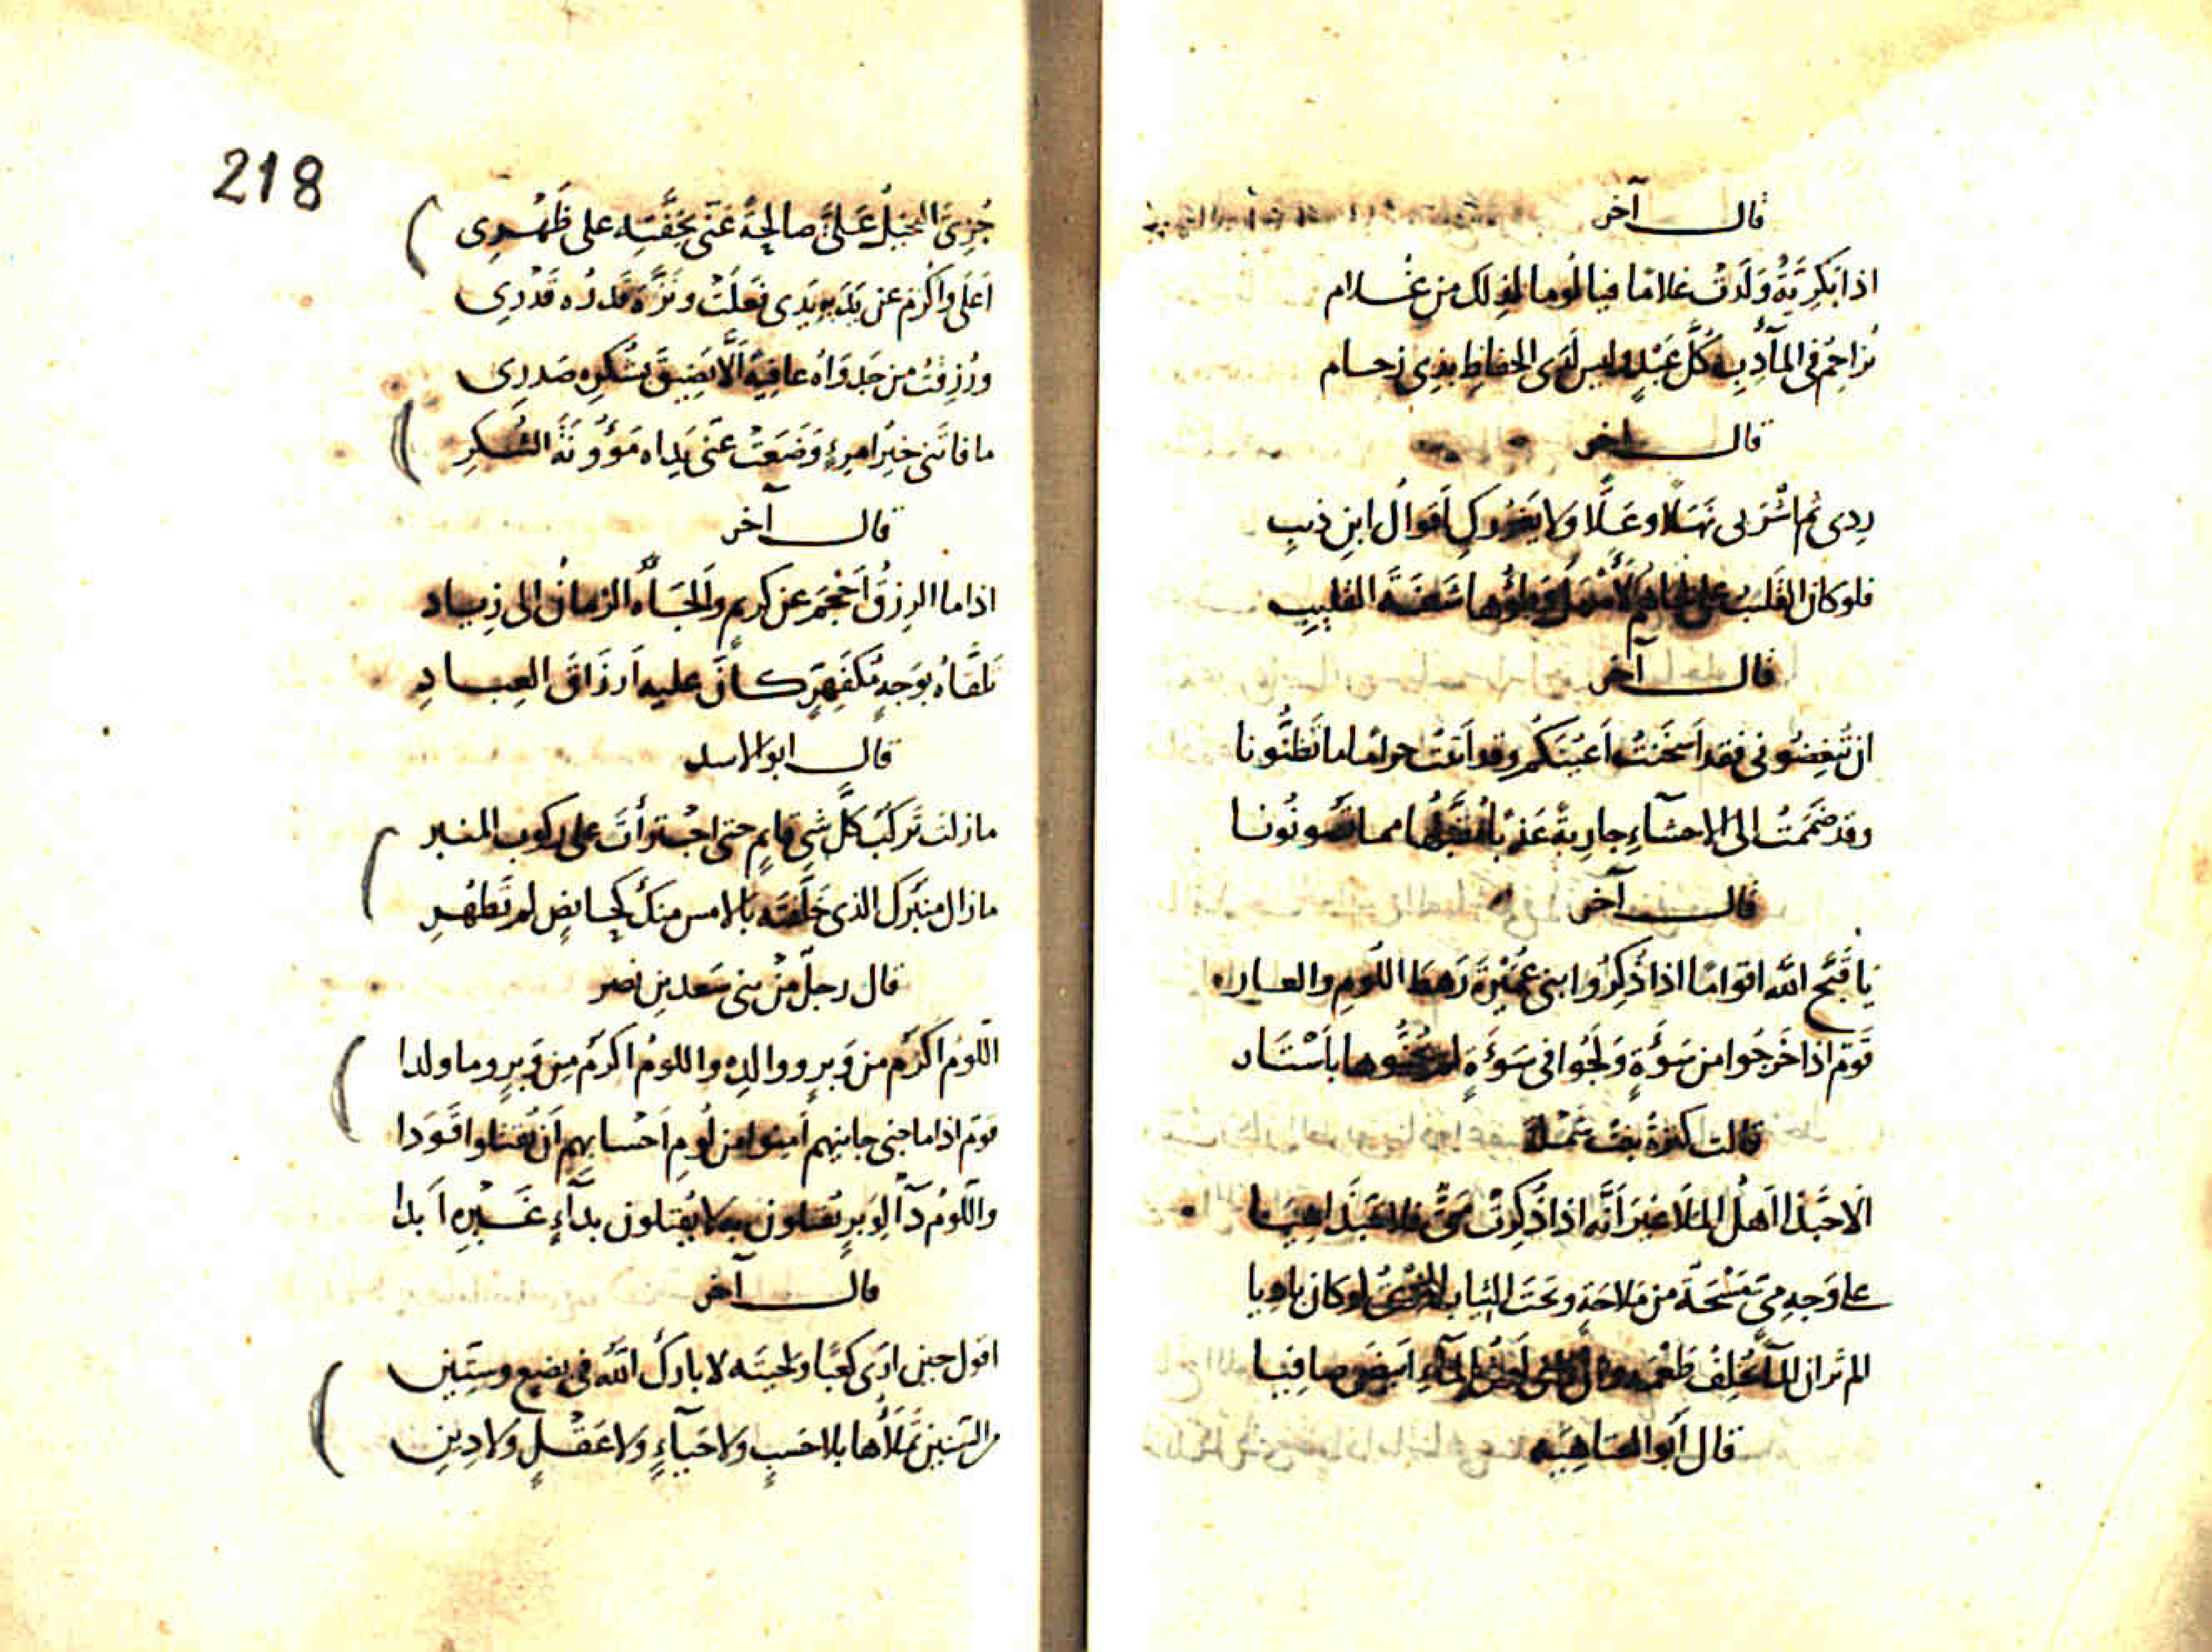 قال آخر
اذا بَكرِيَّةٌ وَلَدتْ غلامًا فيا لُوما لذلك من غلام
تُزاحِمُ فى المآدِبِ كُلَّ عَبْدٍ وليس لَدَى الحفاظِ بذى زحام
قال اخر
رِدِى ثم اشْرَبى نَهَلًا وعَلًّا ولا يَغرُركِ اَقوالُ ابنِ ذيبِ
فلو كان القَليبُ على لحاهم لأسهل وطؤُها شَفَةَ القليبِ
قال آخر
ان تُبغِضُونى فقد اَسخَنتُ اَعيُنَكُم وقد اَتَيتُ حرامًا ما تَظُنُّونا
وقد ضَمَمتُ الى الاحشآءِ جارِيةً عَذبًا مُقَبَّلُها مما تَصُونُونا
قال آخر
يا قَبَّح الله اقوامًا اذا ذُكِرُوا بنى عُمَيْرَةَ رَهطَ اللُّومِ والعار
قَومٌ اذا خَرَجُوا من سَوْءَةٍ وَلَجُوا فى سَوْءَةٍ لم يُجِنُّوها بأَسْتَار
قالت كنزةُ بنتُ شَمْلَةَ
اَلا حَبَّذا اَهلُ المَلا غيرَ اَنَّه اذا ذُكِرَتْ مَىٌّ فلا حَبَّذا هِيَا
على وَجهِ مىٍّ مَسْحَةٌ من مَلاحَةٍ وتَحتَ الثيابِ الخِزْىُ لو كان باديا
الم تر ان المآءَ يُخلِفُ طَعْمُهُ وان كان لَونُ المآءِ ابيضَ صافيا
قال أبو العتاهية
218
جُزِىَ البَخيلُ عَلَىَّ صالحةً عَنّى بِخِفَّتِهِ على ظَهْرِى
اَعلَى واَكْرَم عن يَدَيهِ يَدِى فَعَلَتْ ونَزَّهَ قَدرُه قَدْرِى
ورُزِقتُ من جَدوَاهُ عافِيَةً اَلَّا يَضِيقَ بشُكرِهِ صَدرِى
ما فاتَنى خيرُ امرِئٍ وَضَعَتْ عَنّى يداه مَؤُونَةَ الشُكرِ
قال آخر
اذا ما الرِزقُ اَحجَمَ عن كريمٍ واَلجَأَه الزمانُ الى زِياد
تَلَقَّاه بوَجهٍ مُكفَهِرٍّ كأنَّ عليه اَرزَاقَ العِبادِ
قال ابو الاسد
ما زلتَ تَركَبُ كلَّ شىءٍ قايمٍ حتى اجتَرأْتَ على ركوبِ المنبر
ما زال منبرُكَ الذى خَلَّفتَه بالامس منكَ كحايضٍ لم تَطهُرِ
قال رجلٌ من بنى سَعدِ بنِ نصر
اللُّومُ اكرَمُ من وَبرٍ ووالدِه واللومُ اكرَمُ مِن وَبرٍ وما ولدا
قومٌ اذا ما جنى جانيهم اَمِنُوا من لُومِ اَحْسابهم اَن يُقتلوا قَوَدا
واللُّومُ دآءٌ لِوَبرٍ يُقتلون به لا يُقتلون بدآءٍ غَيرِهِ اَبدا
قال آخر
اقول حين ارى كعبًا ولحيتَه لا بارك الله فى بضعٍ وستين
من السنين تَملَّأها بلا حَسَبٍ ولا حَيآءٍ ولا عَقلٍ ولا دِينِ